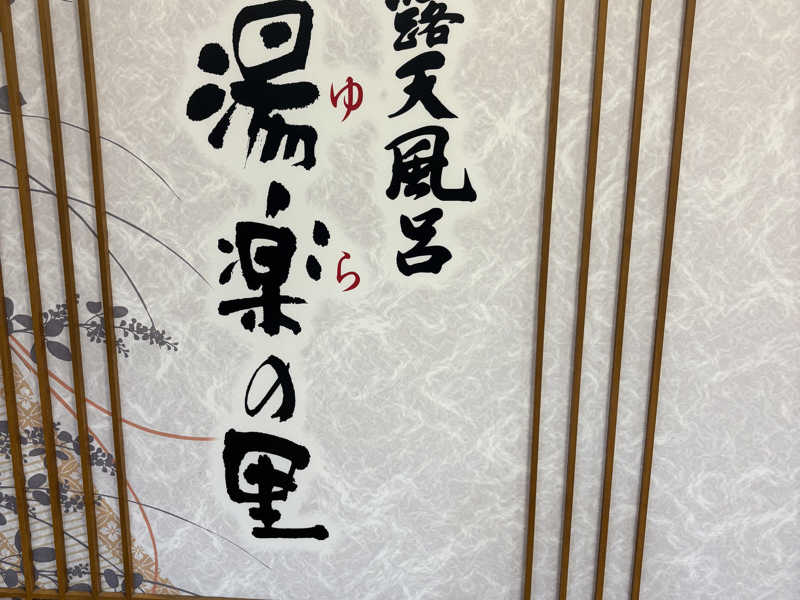 露天風呂
湯楽の里
ゆら